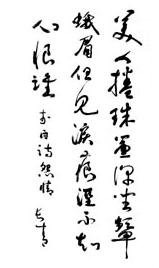 美人捲珠簾深坐顰
蛾眉但見淚痕溼不知
心恨誰
李白詩怨情